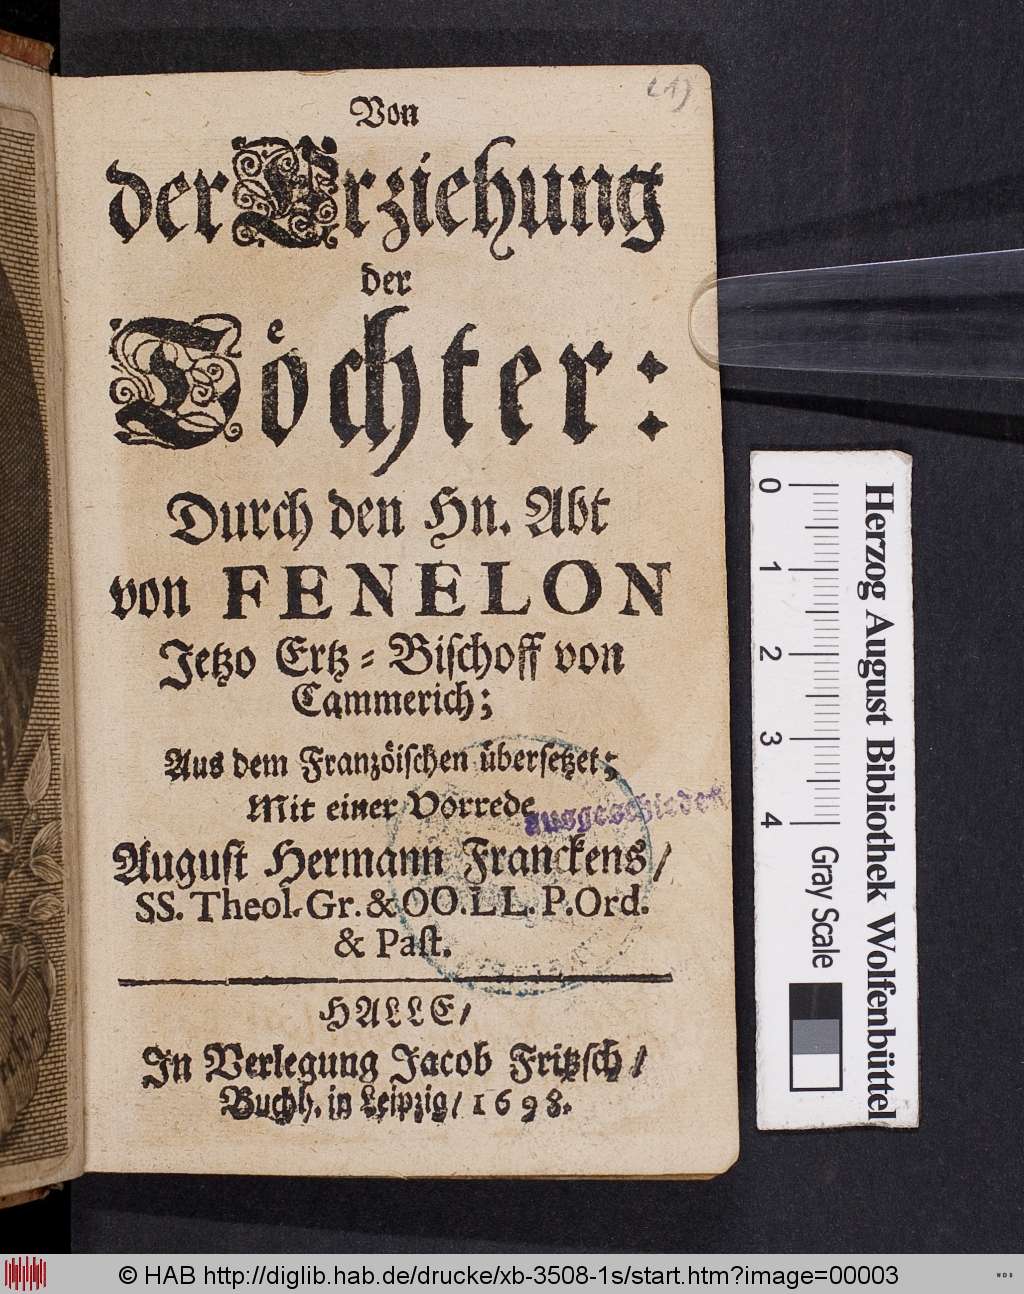 (1)
Von
der Erziehung
der
Toͤchter:
Durch den Hn. Abt
von FENELON
Jetzo Ertz-Bischoff von
Cammerich;
Aus dem Franzöischen übersetzet;
Mit einer Vorrede
ausgeschieden
August Hermann Franckens/
SS. Theol. Gr. & OO. LL. P. Ord.
& Past.
HALLE/
In Verlegung Jacob Fritzsch/
Buchh. in Leipzig/ 1698.
0
1
2
3
4
Gray Scale
Herzog August Bibliothek Wolfenbüttel
© HAB http://diglib.hab.de/drucke/xb-3508-1s/start.htm?image=00003
WDB